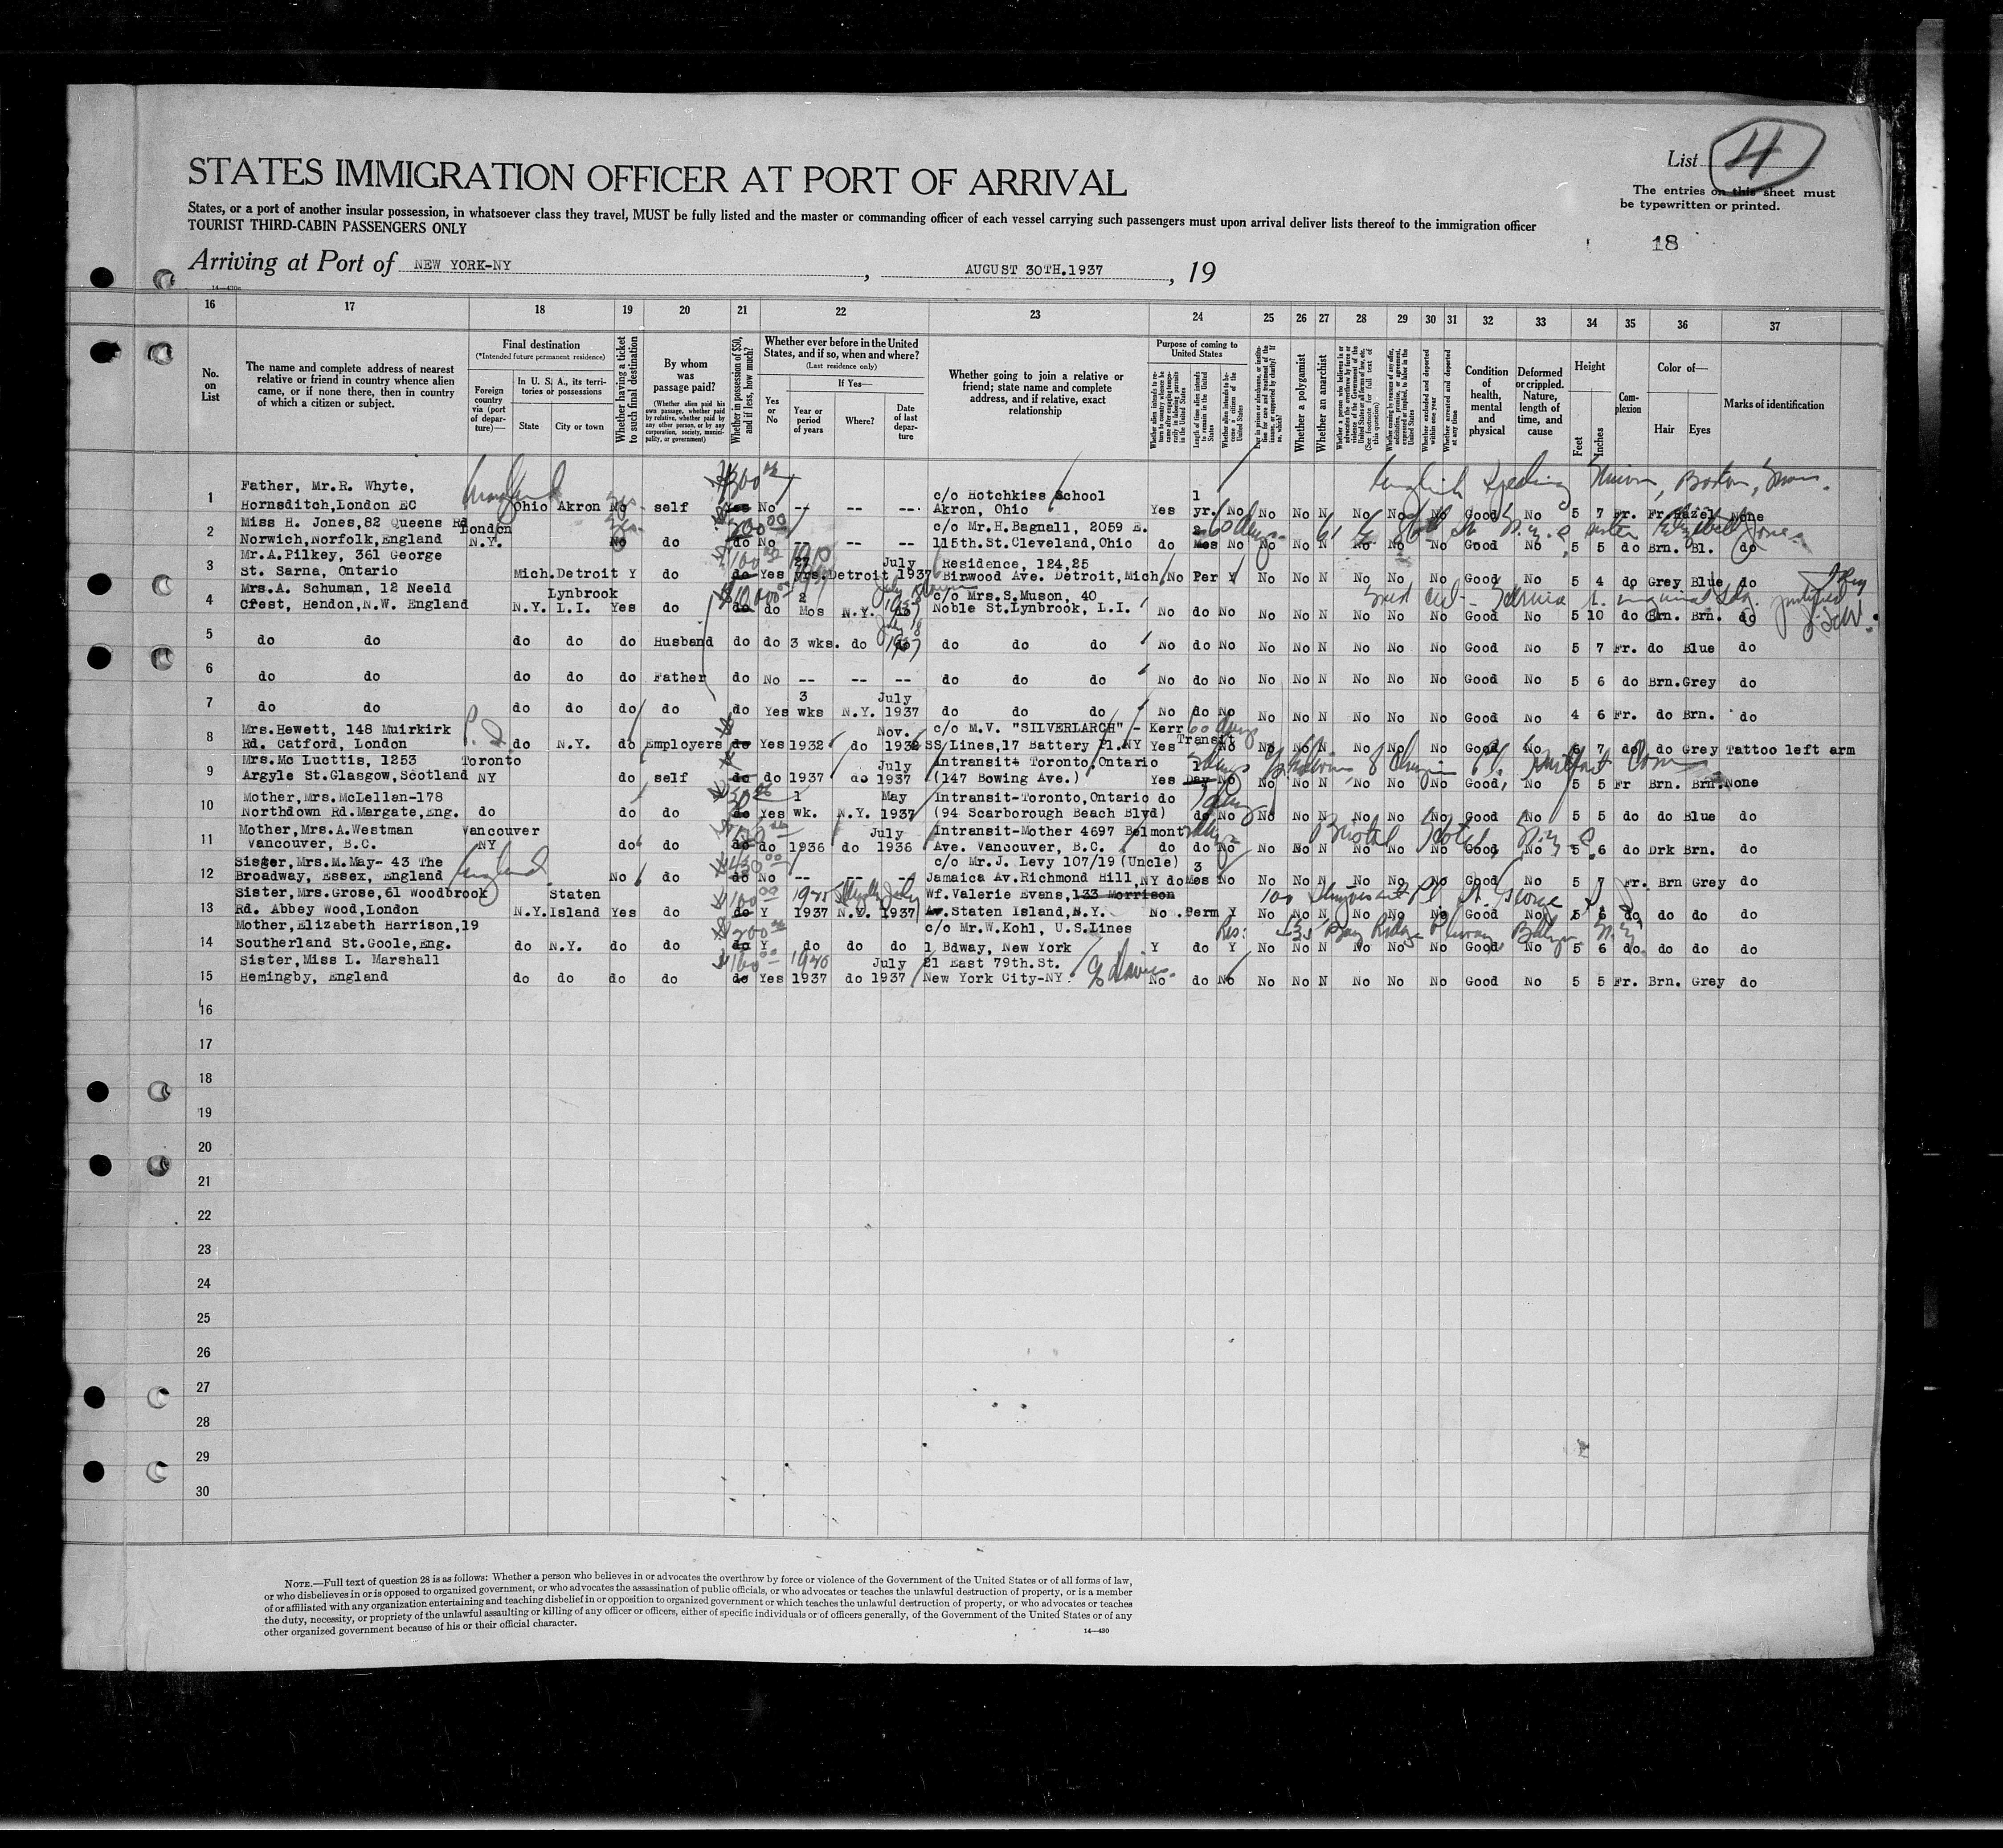 List 4
STATES IMMIGRATION OFFICER AT PORT OF ARRIVAL
The entries on this sheet must
be typewritten or printed.
States, or a port of another insular possession, in whatsoever class they travel, MUST be fully listed and the master or commanding officer of each vessel carrying such passengers must upon arrival deliver lists thereof to the immigration officer
TOURIST THIRD-CABIN PASSENGERS ONLY
18
Arriving at Port of NEW YORK-NY, AUGUST 30TH.1937, 19
16 17 18 19 20 21 22 23 24 25 26 27 28 29 30 31 32 33 34 35 36 37
No. on List
The name and complete address of nearest relative or friend in country whence alien came, or if none there, then in country of which a citizen or subject.
Final destination
(*Intended future permanent residence)
Foreign country via (port of departure)—
In U. S. A., its territories or possessions
State City or town
Whether having a ticket to such final destination
By whom was passage paid?
(Whether alien paid his own passage, whether paid by relative, whether paid by any other person, or by any corporation, society, municipality, or government)
Whether in possession of $50, and if less, how much?
Whether ever before in the United States, and if so, when and where?
(Last residence only)
If Yes—
Yes or No
Year or period of years
Where?
Date of last departure
Whether going to join a relative or friend; state name and complete address, and if relative, exact relationship
Purpose of coming to United States
Length of time alien intends to remain in the United States
Whether a polygamist
Whether an anarchist
Condition of health, mental and physical
Deformed or crippled. Nature, length of time, and cause
Height
Feet Inches
Complexion
Color of—
Hair Eyes
Marks of identification
1 Father, Mr.R. Whyte,
Hornsditch,London EC Ohio Akron No self Yes No -- -- -- c/o Hotchkiss School Akron, Ohio Yes 1 yr. No No No N No No No Good No 5 7 Fr. Fr Hazel None
English Speaking Union, Boston, Mass.
2 Miss H. Jones,82 Queens Rd
Norwich,Norfolk,England London N.Y. No do do No -- -- -- c/o Mr.H.Bagnall, 2059 E. 115th.St.Cleveland,Ohio do 2 Mos No No No N No No No Good No 5 5 do Brn. Bl. do
60 days
3 Mr.A.Pilkey, 361 George
St. Sarna, Ontario Mich. Detroit Y do do Yes 27 yrs. Detroit July 1937 Residence, 124,25 Birwood Ave. Detroit,Mich No Per Y No No N No No No Good No 5 4 do Grey Blue do
4 Mrs.A. Schuman, 12 Neeld
Crest, Hendon,N.W. England N.Y. Lynbrook L.I. Yes do do do 2 Mos N.Y. do c/o Mrs.S.Muson, 40 Noble St.Lynbrook, L.I. No do No No No N No No No Good No 5 10 do Brn. Brn. do
5 do do do do do Husband do do 3 wks. do do do do do No do No No No N No No No Good No 5 7 Fr. do Blue do
6 do do do do do Father do No -- -- -- do do do No do No No No N No No No Good No 5 6 do Brn. Grey do
7 do do do do do do do Yes 3 wks N.Y. July 1937 do do do No do No No No N No No No Good No 4 6 Fr. do Brn. do
8 Mrs.Hewett, 148 Muirkirk
Rd. Catford, London do N.Y. do Employers do Yes 1932 do Nov. 1932 c/o M.V. "SILVERLARCH" - Kerr SS Lines,17 Battery Pl.NY Yes Transit No No No N No No No Good No 5 7 do do Grey Tattoo left arm
60 days
9 Mrs.Mc Luettis, 1253
Argyle St.Glasgow,Scotland Toronto NY do self do do 1937 do July 1937 Intransit Toronto,Ontario (147 Bowing Ave.) Yes 1 Day No No No N No No No Good No 5 5 Fr Brn. Brn. None
10 Mother,Mrs.McLellan-178
Northdown Rd.Margate,Eng. do do do do Yes 1 wk. N.Y. May 1937 Intransit-Toronto,Ontario (94 Scarborough Beach Blyd) do do No No No N No No No Good No 5 5 do do Blue do
11 Mother,Mrs.A.Westman
Vancouver, B.C. Vancouver NY do do do do 1936 do July 1936 Intransit-Mother 4697 Belmont Ave. Vancouver, B.C. do do No No No N No No No Good No 5 6 do Drk Brn. do
12 Sister,Mrs.M.May- 43 The
Broadway, Essex, England England No do do No -- -- -- c/o Mr.J. Levy 107/19 (Uncle) Jamaica Av.Richmond Hill,NY do 3 Mos No No No N No No No Good No 5 7 Fr. Brn Grey do
13 Sister,Mrs.Grose,61 Woodbrook
Rd. Abbey Wood,London N.Y. Staten Island Yes do do Y 1937 N.Y. 1937 Wf.Valerie Evans,133 Morrison Av.Staten Island,N.Y. No Perm Y No No N No No No Good No 5 6 do do do do
14 Mother,Elizabeth Harrison,19
Southerland St.Goole,Eng. do N.Y. do do do Y do do do c/o Mr.W.Kohl, U.S.Lines 1 Bdway, New York Y do Y No No N No No No Good No 5 6 do do do do
15 Sister,Miss L. Marshall
Hemingby, England do do do do do Yes 1937 do July 1937 21 East 79th.St. New York City-NY. No do No No No N No No No Good No 5 5 Fr. Brn. Grey do
16
17
18
19
20
21
22
23
24
25
26
27
28
29
30
NOTE.—Full text of question 28 is as follows: Whether a person who believes in or advocates the overthrow by force or violence of the Government of the United States or of all forms of law,
or who disbelieves in or is opposed to organized government, or who advocates the assassination of public officials, or who advocates or teaches the unlawful destruction of property, or is a member
of or affiliated with any organization entertaining and teaching disbelief in or opposition to organized government or which teaches the unlawful destruction of property, or who advocates or teaches
the duty, necessity, or propriety of the unlawful assaulting or killing of any officer or officers, either of specific individuals or of officers generally, of the Government of the United States or of any
other organized government because of his or their official character.
14—430